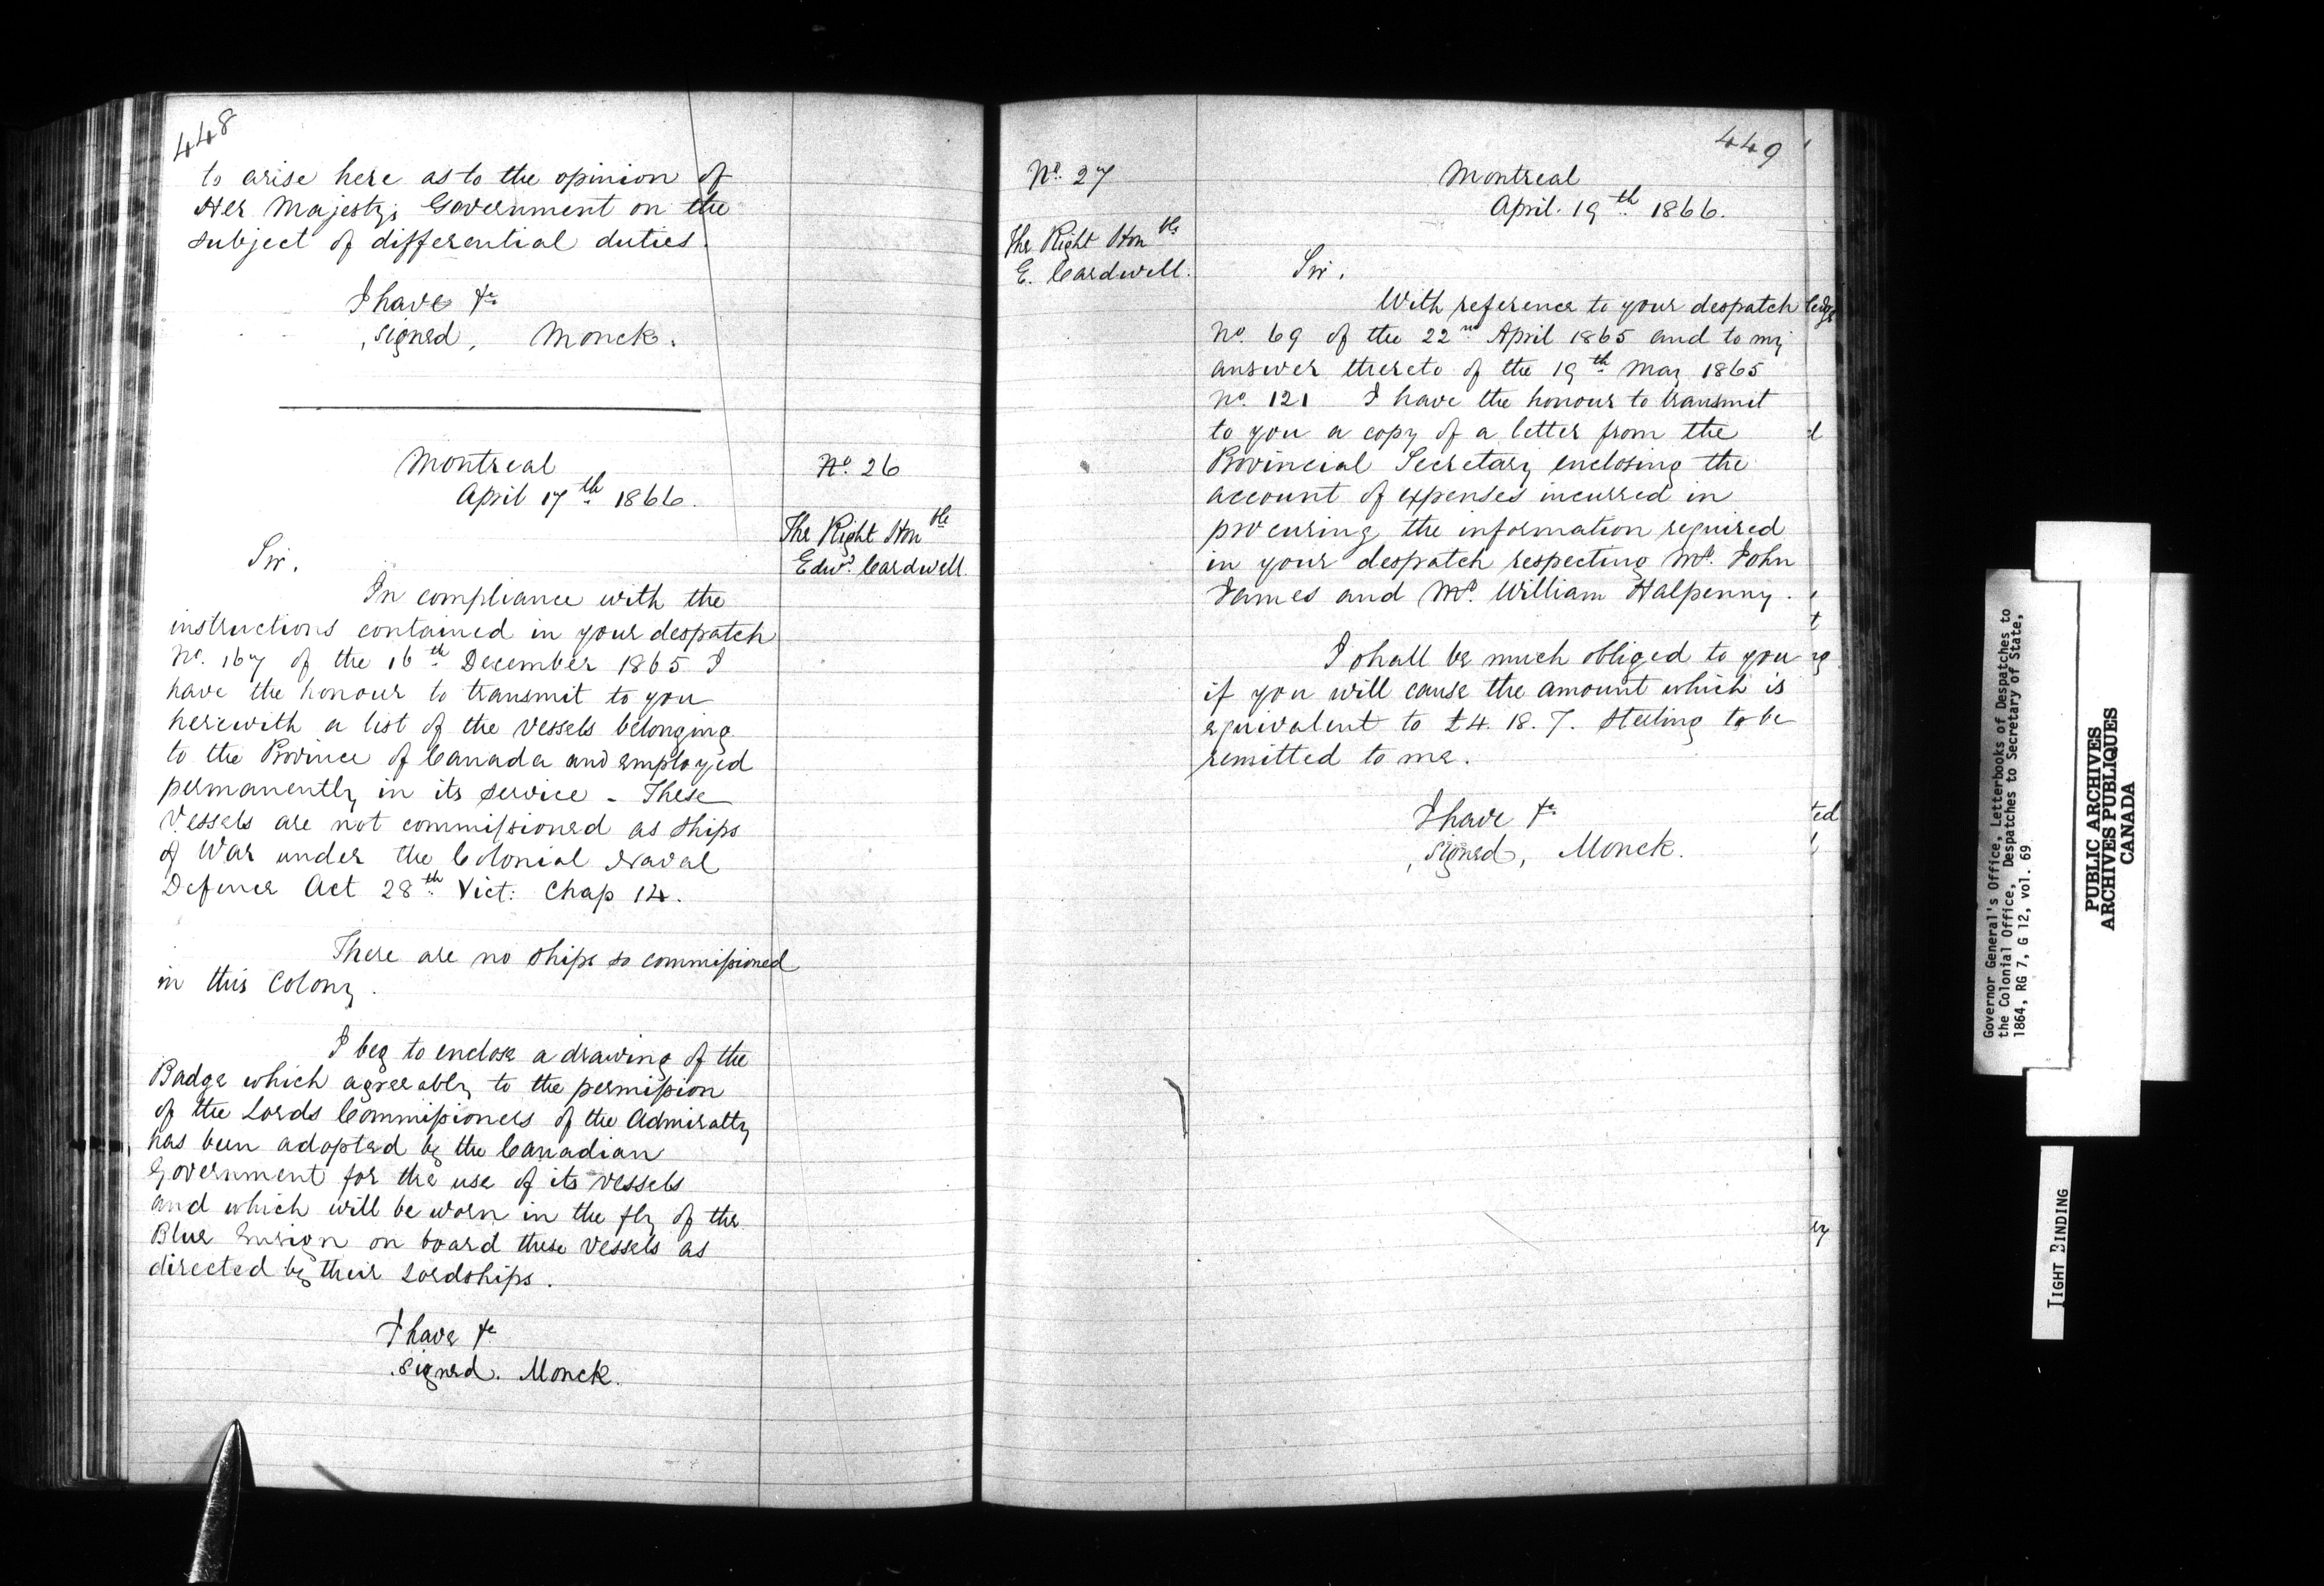 448
to arise here as to the opinion of
Her Majesty's Government on the
subject of differential duties.
I have &c
signed, Monck.
Montreal
April 17th 1866.
No. 26
The Right Honble
Edwd. Cardwell.
Sir,
In compliance with the
instructions contained in your despatch
No. 167 of the 16th December 1865 I
have the honour to transmit to you
herewith a list of the vessels belonging
to the Province of Canada and employed
permanently in its service - These
Vessels are not commissioned as ships
of War under the Colonial Naval
Defence Act 28th Vict: Chap 14.
There are no ships so commissioned
in this Colony.
I beg to enclose a drawing of the
Badge which agreeably to the permission
of the Lords Commissioners of the Admiralty
has been adopted by the Canadian
Government for the use of its vessels
and which will be worn in the fly of the
Blue Ensign on board these vessels as
directed by their Lordships.
I have &c
signed. Monck.
449
No. 27
The Right Honble
E. Cardwell.
Montreal
April. 19th 1866.
Sir,
With reference to your despatch
No. 69 of the 22nd April 1865 and to my
answer thereto of the 19th May 1865
No. 121 I have the honour to transmit
to you a copy of a letter from the
Provincial Secretary enclosing the
account of expenses incurred in
procuring the information required
in your despatch respecting Mr. John
James and Mr. William Halpenny.
I shall be much obliged to you
if you will cause the amount which is
equivalent to £4. 18. 7. Sterling to be
remitted to me.
I have &c
signed, Monck.
ted
Governor General's Office, Letterbooks of Despatches to
the Colonial Office, Despatches to Secretary of State,
1864, RG 7, G 12, vol. 69
PUBLIC ARCHIVES
ARCHIVES PUBLIQUES
CANADA
TIGHT BINDING